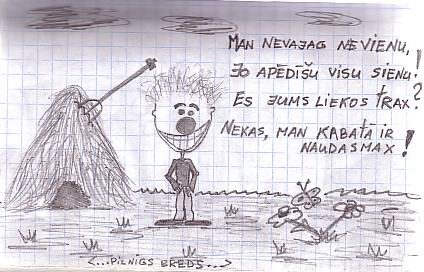 MAN NEVAJAG NEVIENU,
JO APĒDĪŠU VISU SIENU!
ES JUMS LIEKOS TRAX?
NEKAS, MAN KABATĀ IR
NAUDASMAX!
<...PILNĪGS BREDS...>